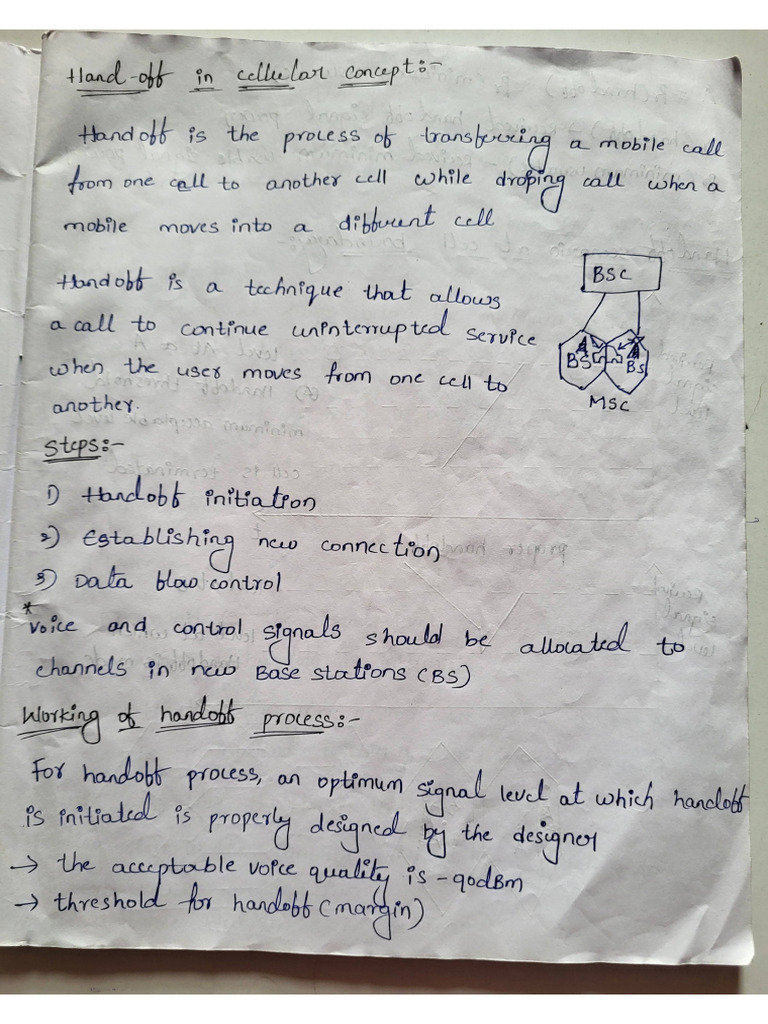 Hand-off in cellular concept:-
Handoff is the process of transferring a mobile call
from one cell to another cell while droping call when a
mobile moves into a different cell
Handoff is a technique that allows
a call to continue uninterrupted service
when the user moves from one cell to
another.
BSC
BS
BS
MSC
Steps:-
1) Handoff initiation
2) Establishing new connection
3) Data flow control
* Voice and control signals should be allocated to
channels in new Base stations (BS)
Working of handoff process:-
For handoff process, an optimum signal level at which handoff
is initiated is properly designed by the designer
→ the acceptable voice quality is -90dBm
→ threshold for handoff (margin)